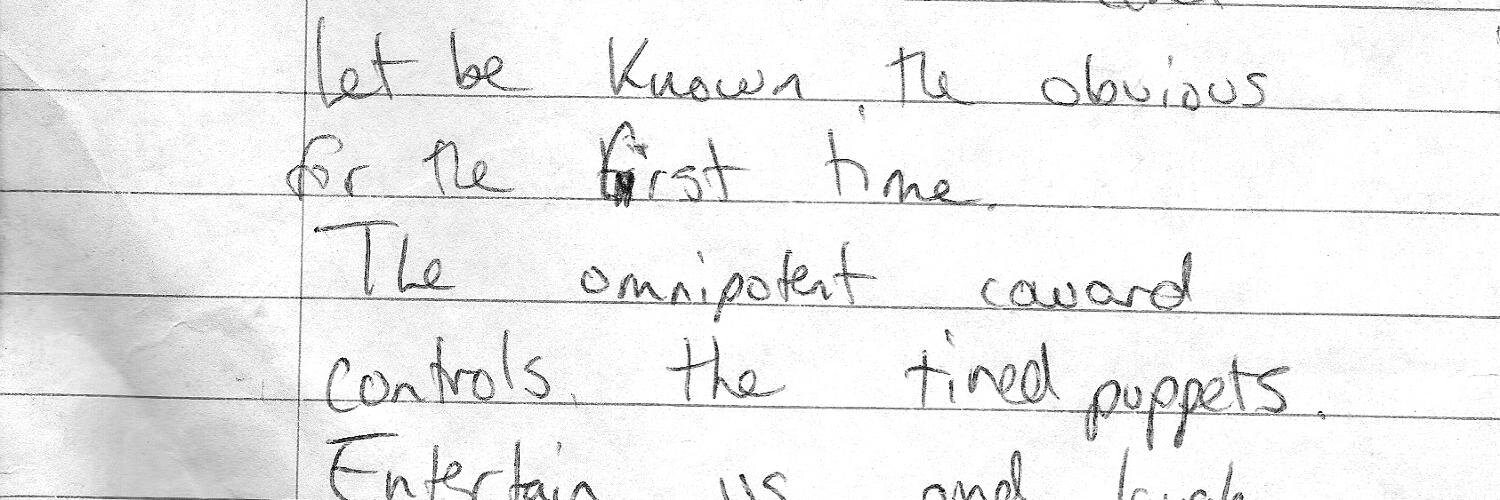 let be known, the obvious
for the first time.
The omnipotent coward
controls, the tired puppets.
Entertain us and